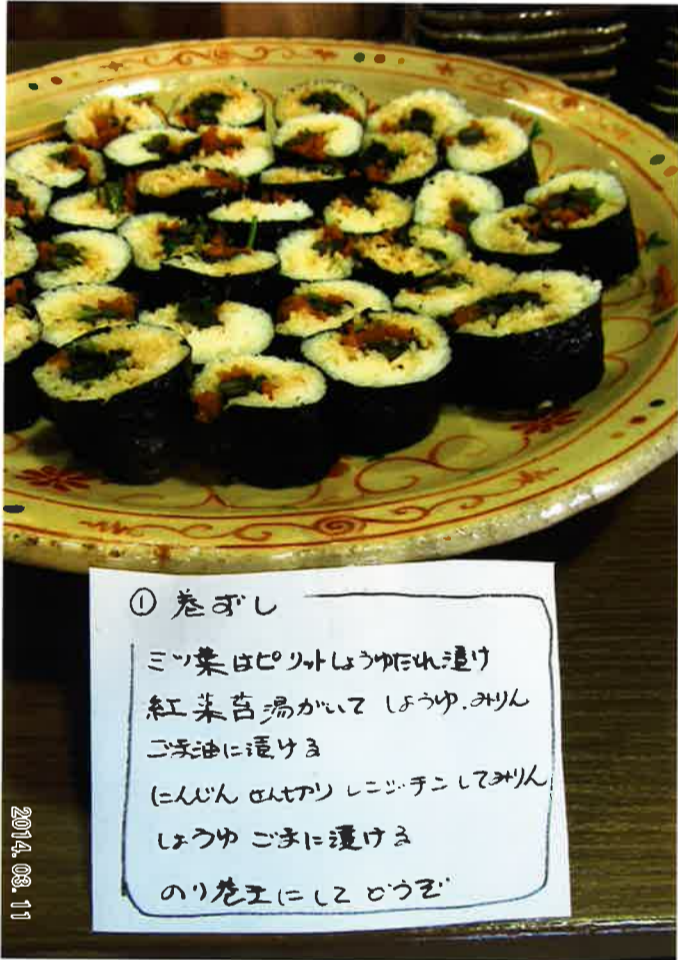 ① 巻ずし
ミツ葉はピリットしょうゆだれ漬け
紅菜苔湯がいて しょうゆ.みりん
ごま油に漬ける
にんじん せん切り レンジチンしてみりん
しょうゆ ごまに漬ける
のり巻きにして どうぞ
2014.03.11